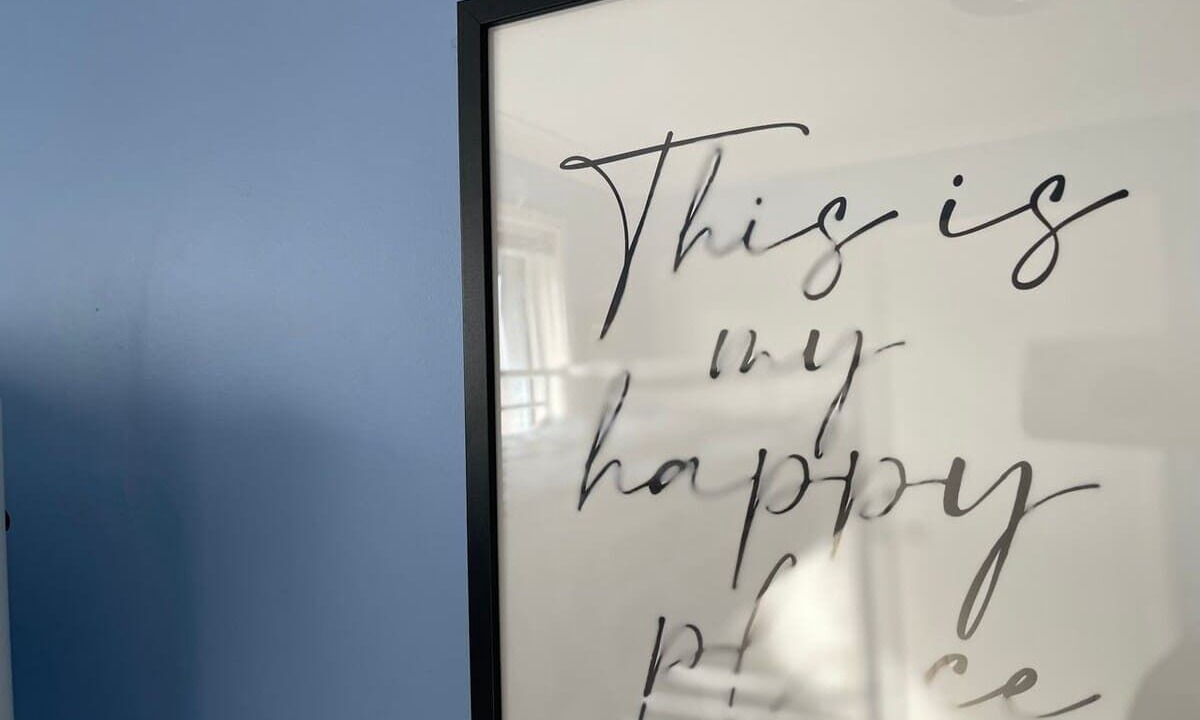 This is
my
happy
place